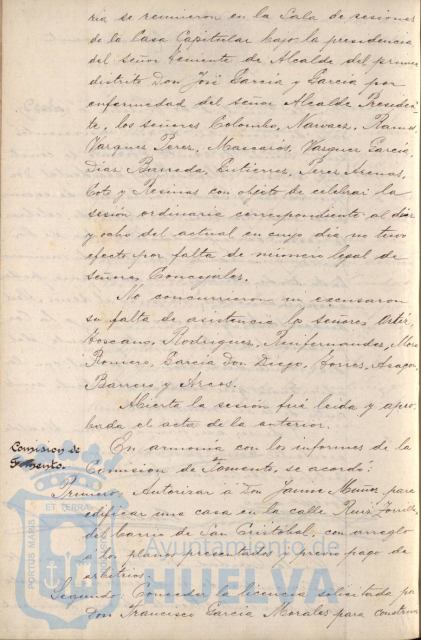 ria se reunieron en la Sala de sesiones
de la Casa Capitular bajo la presidencia
del señor Teniente de Alcalde del primer
distrito Don José García y García por
enfermedad del señor Alcalde Presiden-
te, los señores Colombo, Narvaez, Ramos,
Vazquez Perez, Mascaros, Vazquez García,
Diaz Barreda, Gutierrez, Perez Arenas,
Coto y Resinas con objeto de celebrar la
sesión ordinaria correspondiente al diez
y ocho del actual en cuyo dia no tuvo
efecto por falta de número legal de
señores Concejales.
No concurrieron ni excusaron
su falta de asistencia los señores Ortiz,
Toscano, Rodriguez, Reifernandez, Mora
Romero, García Don Diego, Torres, Aragon
Barrero y Arcos.
Abierta la sesión fué leida y apro-
bada el acta de la anterior.
Comisión de
Fomento.
En armonía con los informes de la
Comisión de Fomento, se acordó:
Primero: Autorizar á Don Jaime Muñoz para
edificar una casa en la calle Ruiz Zorrilla
del barrio de San Cristóbal, con arreglo
a los planos presentados y previo pago de
arbitrios.
Segundo: Conceder la licencia solicitada por
Don Francisco García Morales para construir
Ayuntamiento de
HUELVA
PORTUS MARIS
ET TERRA